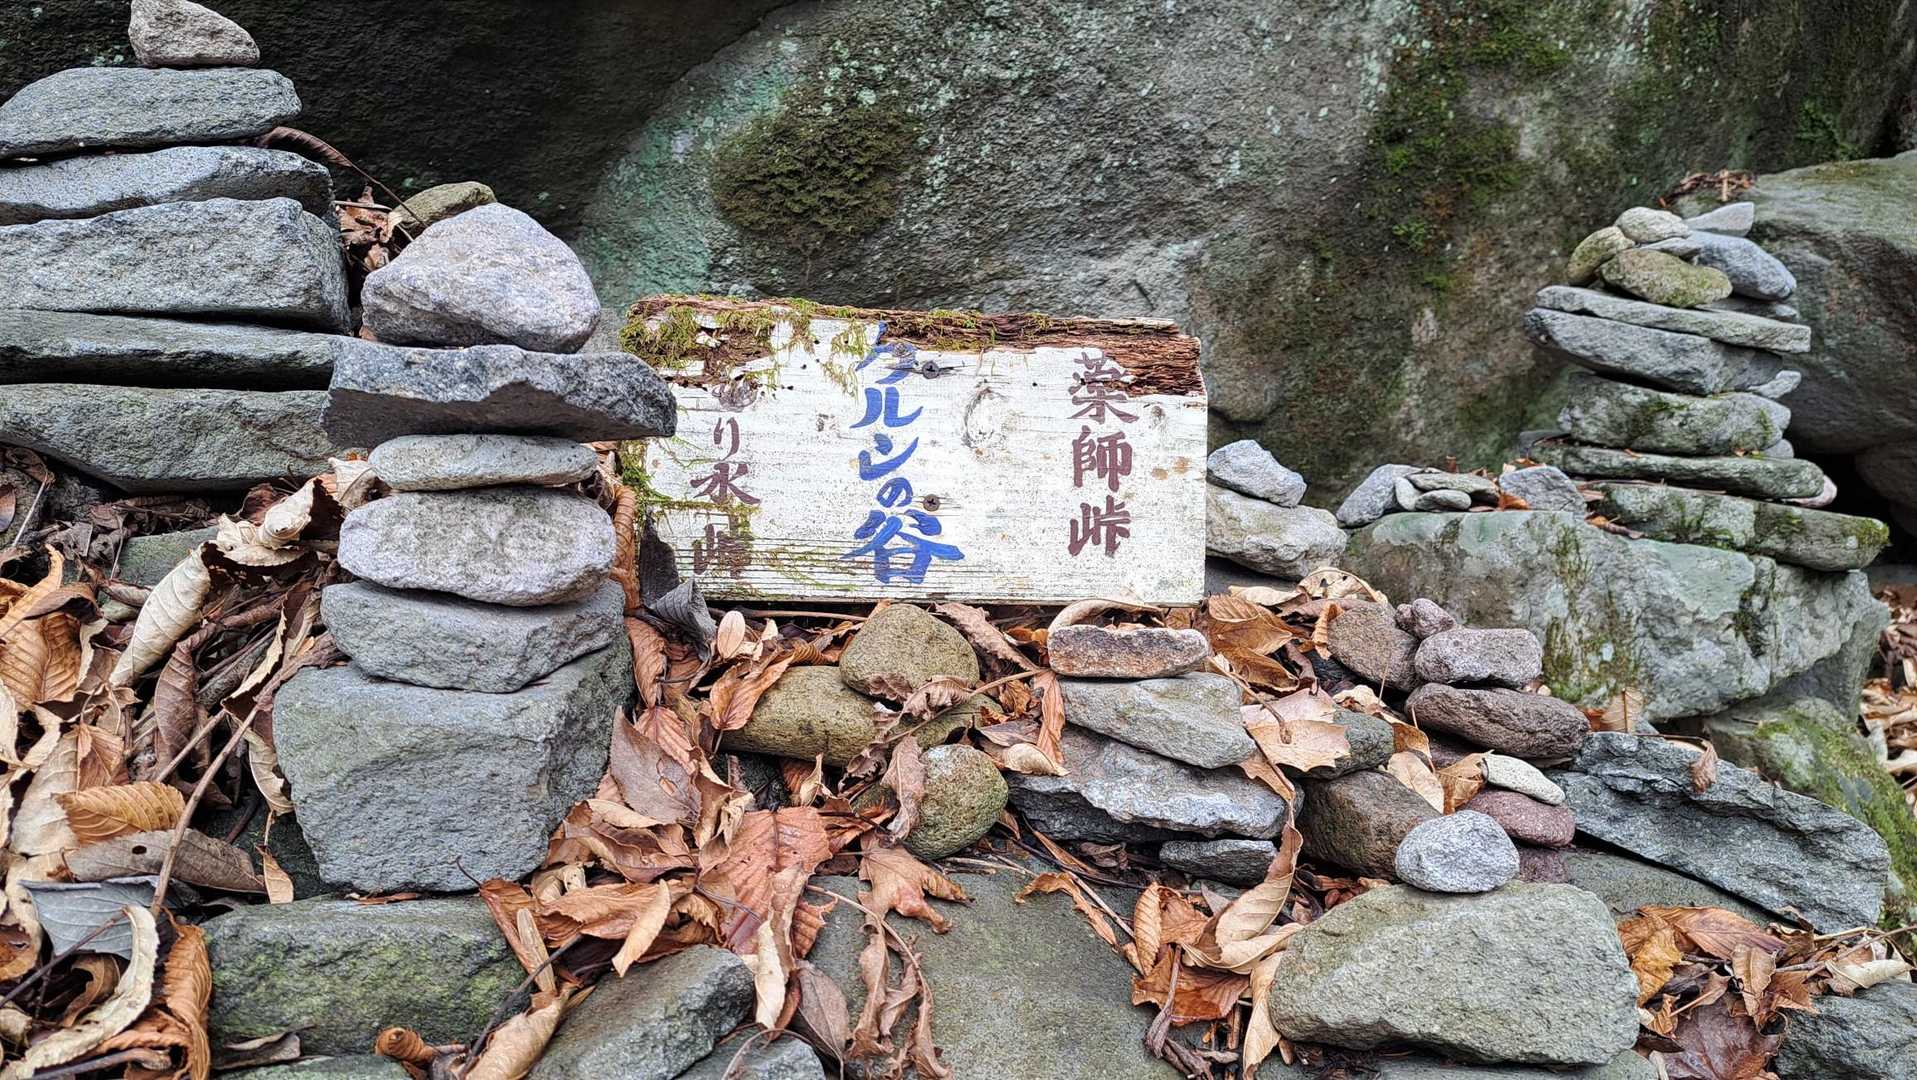 薬師峠
ケルンの谷
り水峠